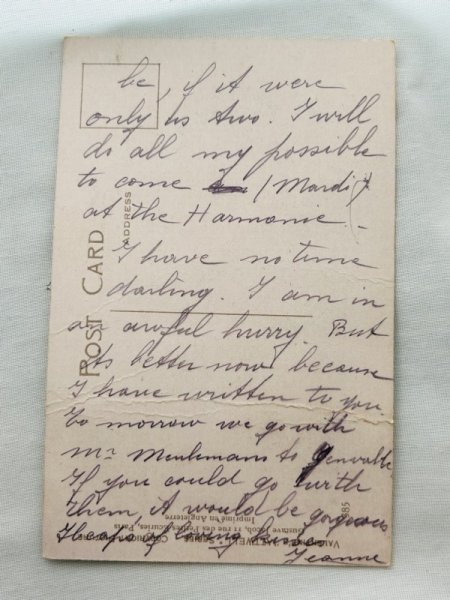 be, if it were
only us two. I will
do all my possible
to come (Mardi)
at the Harmonie.
I have no time
darling. I am in
an awful hurry. But
its better now because
I have written to you.
To morrow we go with
Mr Meulemans to Genval
If you could go with
them, it would be gorgeous
Heaps of loving kisses
Jeanne
POST CARD
ADDRESS
Gustave Jacob, 11 rue des Petites Ecuries, Paris
Imprimé en Angleterre